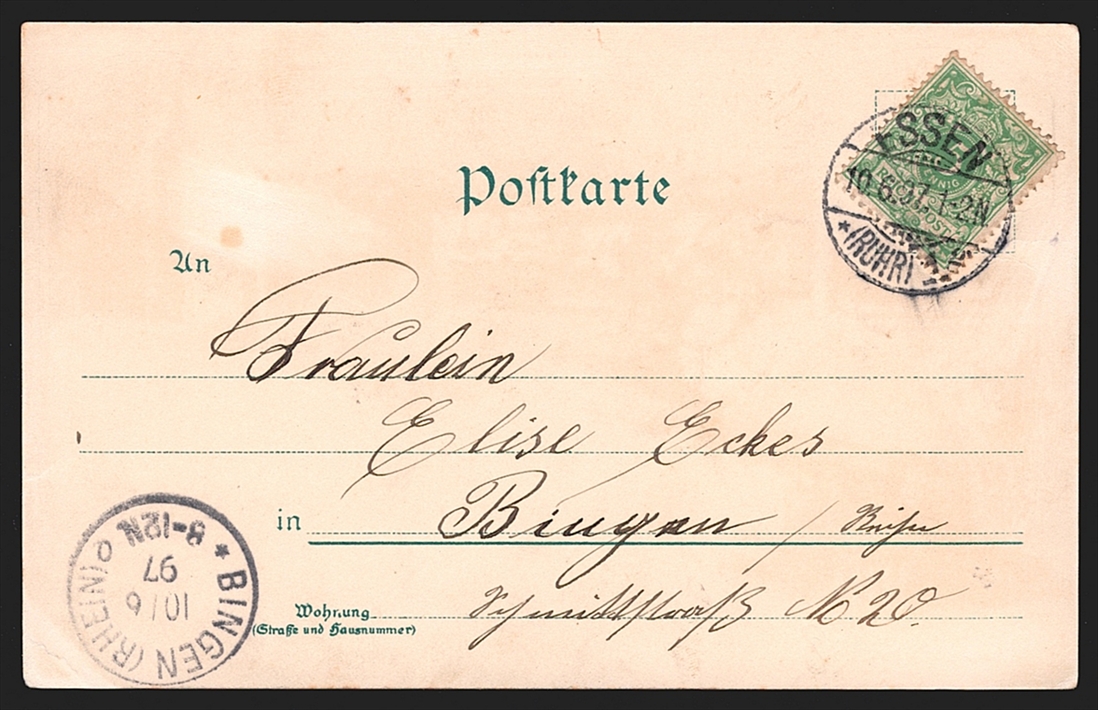 Postkarte
ESSEN
10.6.97.1-2N
*(RUHR)
An
Fräulein
Elise Eckes
in Bingen / Rhein
Wohnung Schmittstraß N 20.
(Straße und Hausnummer)
* BINGEN (RHEIN) o
10/6
97
8-12N